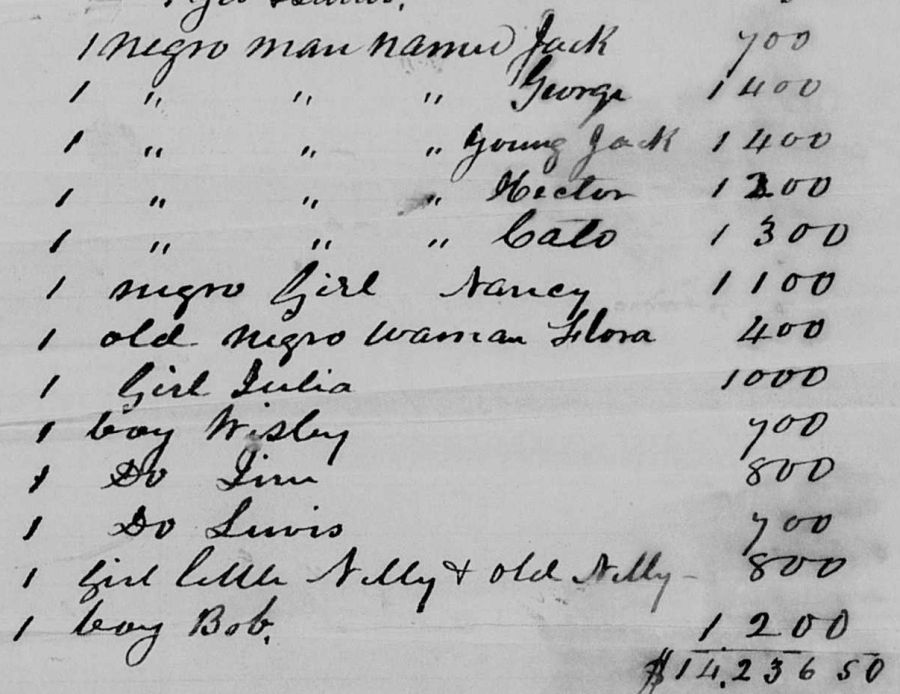 1 negro man named Jack 700
1 " " " George 1400
1 " " " Young Jack 1400
1 " " " Hector 1200
1 " " " Cato 1300
1 negro Girl Nancy 1100
1 old negro woman Flora 400
1 Girl Julia 1000
1 boy Wisley 700
1 Do Jim 800
1 Do Lewis 700
1 Girl little Nelly & old Nelly - 800
1 boy Bob. 1200
$14.236 50